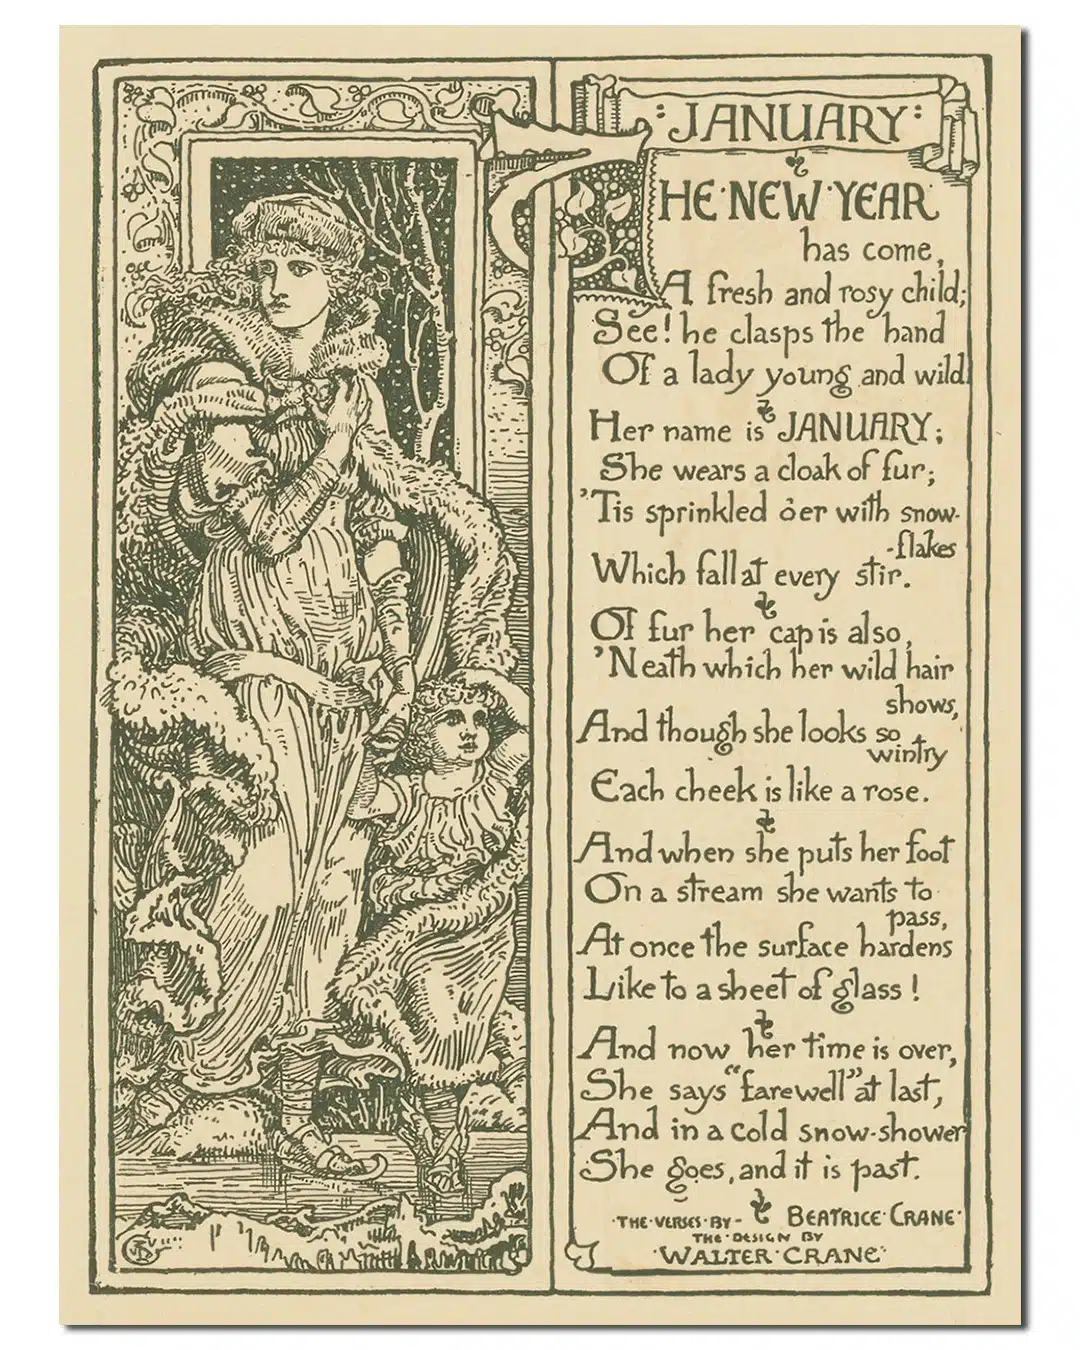 :JANUARY:
THE·NEW·YEAR
has come,
A fresh and rosy child;
See! he clasps the hand
Of a lady young and wild.
Her name is JANUARY;
She wears a cloak of fur;
'Tis sprinkled o'er with snow-
-flakes
Which fall at every stir.
Of fur her cap is also,
'Neath which her wild hair
shows,
And though she looks so
wintry
Each cheek is like a rose.
And when she puts her foot
On a stream she wants to
pass,
At once the surface hardens
Like to a sheet of glass!
And now her time is over,
She says "farewell" at last,
And in a cold snow-shower
She goes, and it is past.
·THE·VERSES·BY- BEATRICE·CRANE·
THE·DESIGN BY
·WALTER·CRANE·